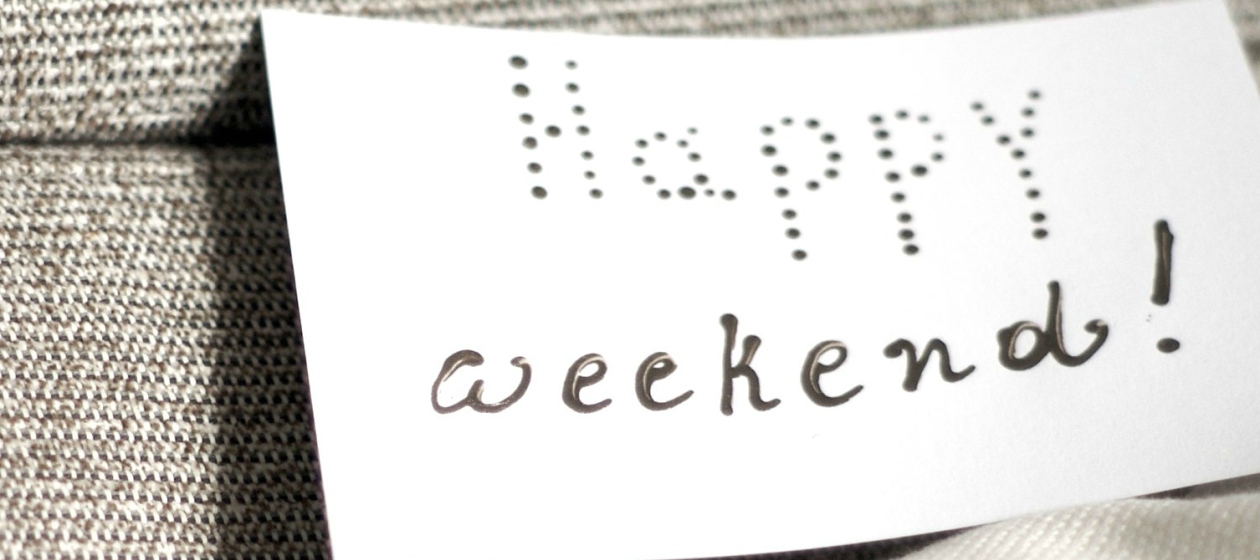 Happy
weekend!